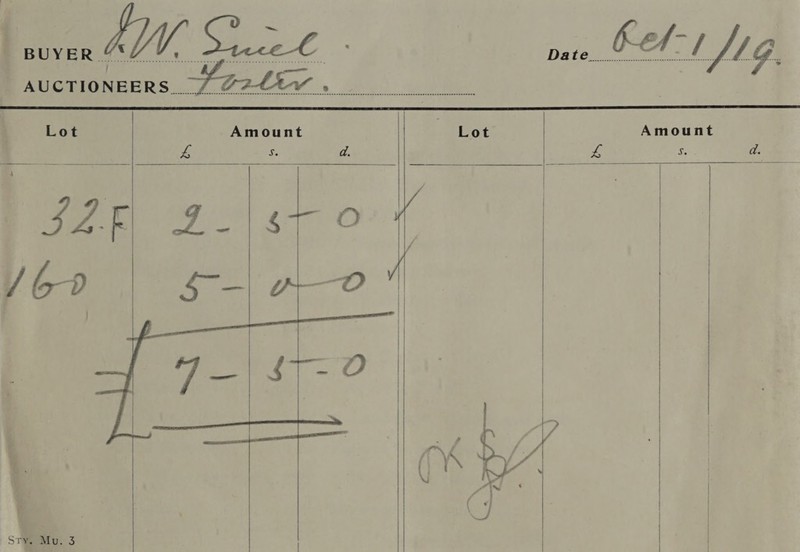 BUYER J.W. Sniel Date Oct. 1/19.
AUCTIONEERS Foster.
Lot Amount Lot Amount
£ s. d. £ s. d.
32.F 2 - 5 - 0 ✓
160 5 - 0 - 0 ✓
£ 7 - 5 - 0
OK
STY. MU. 3